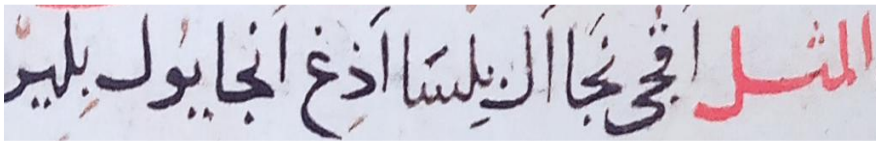 المثل افجى نجا ال بلسا اذغ انجا يول بلير